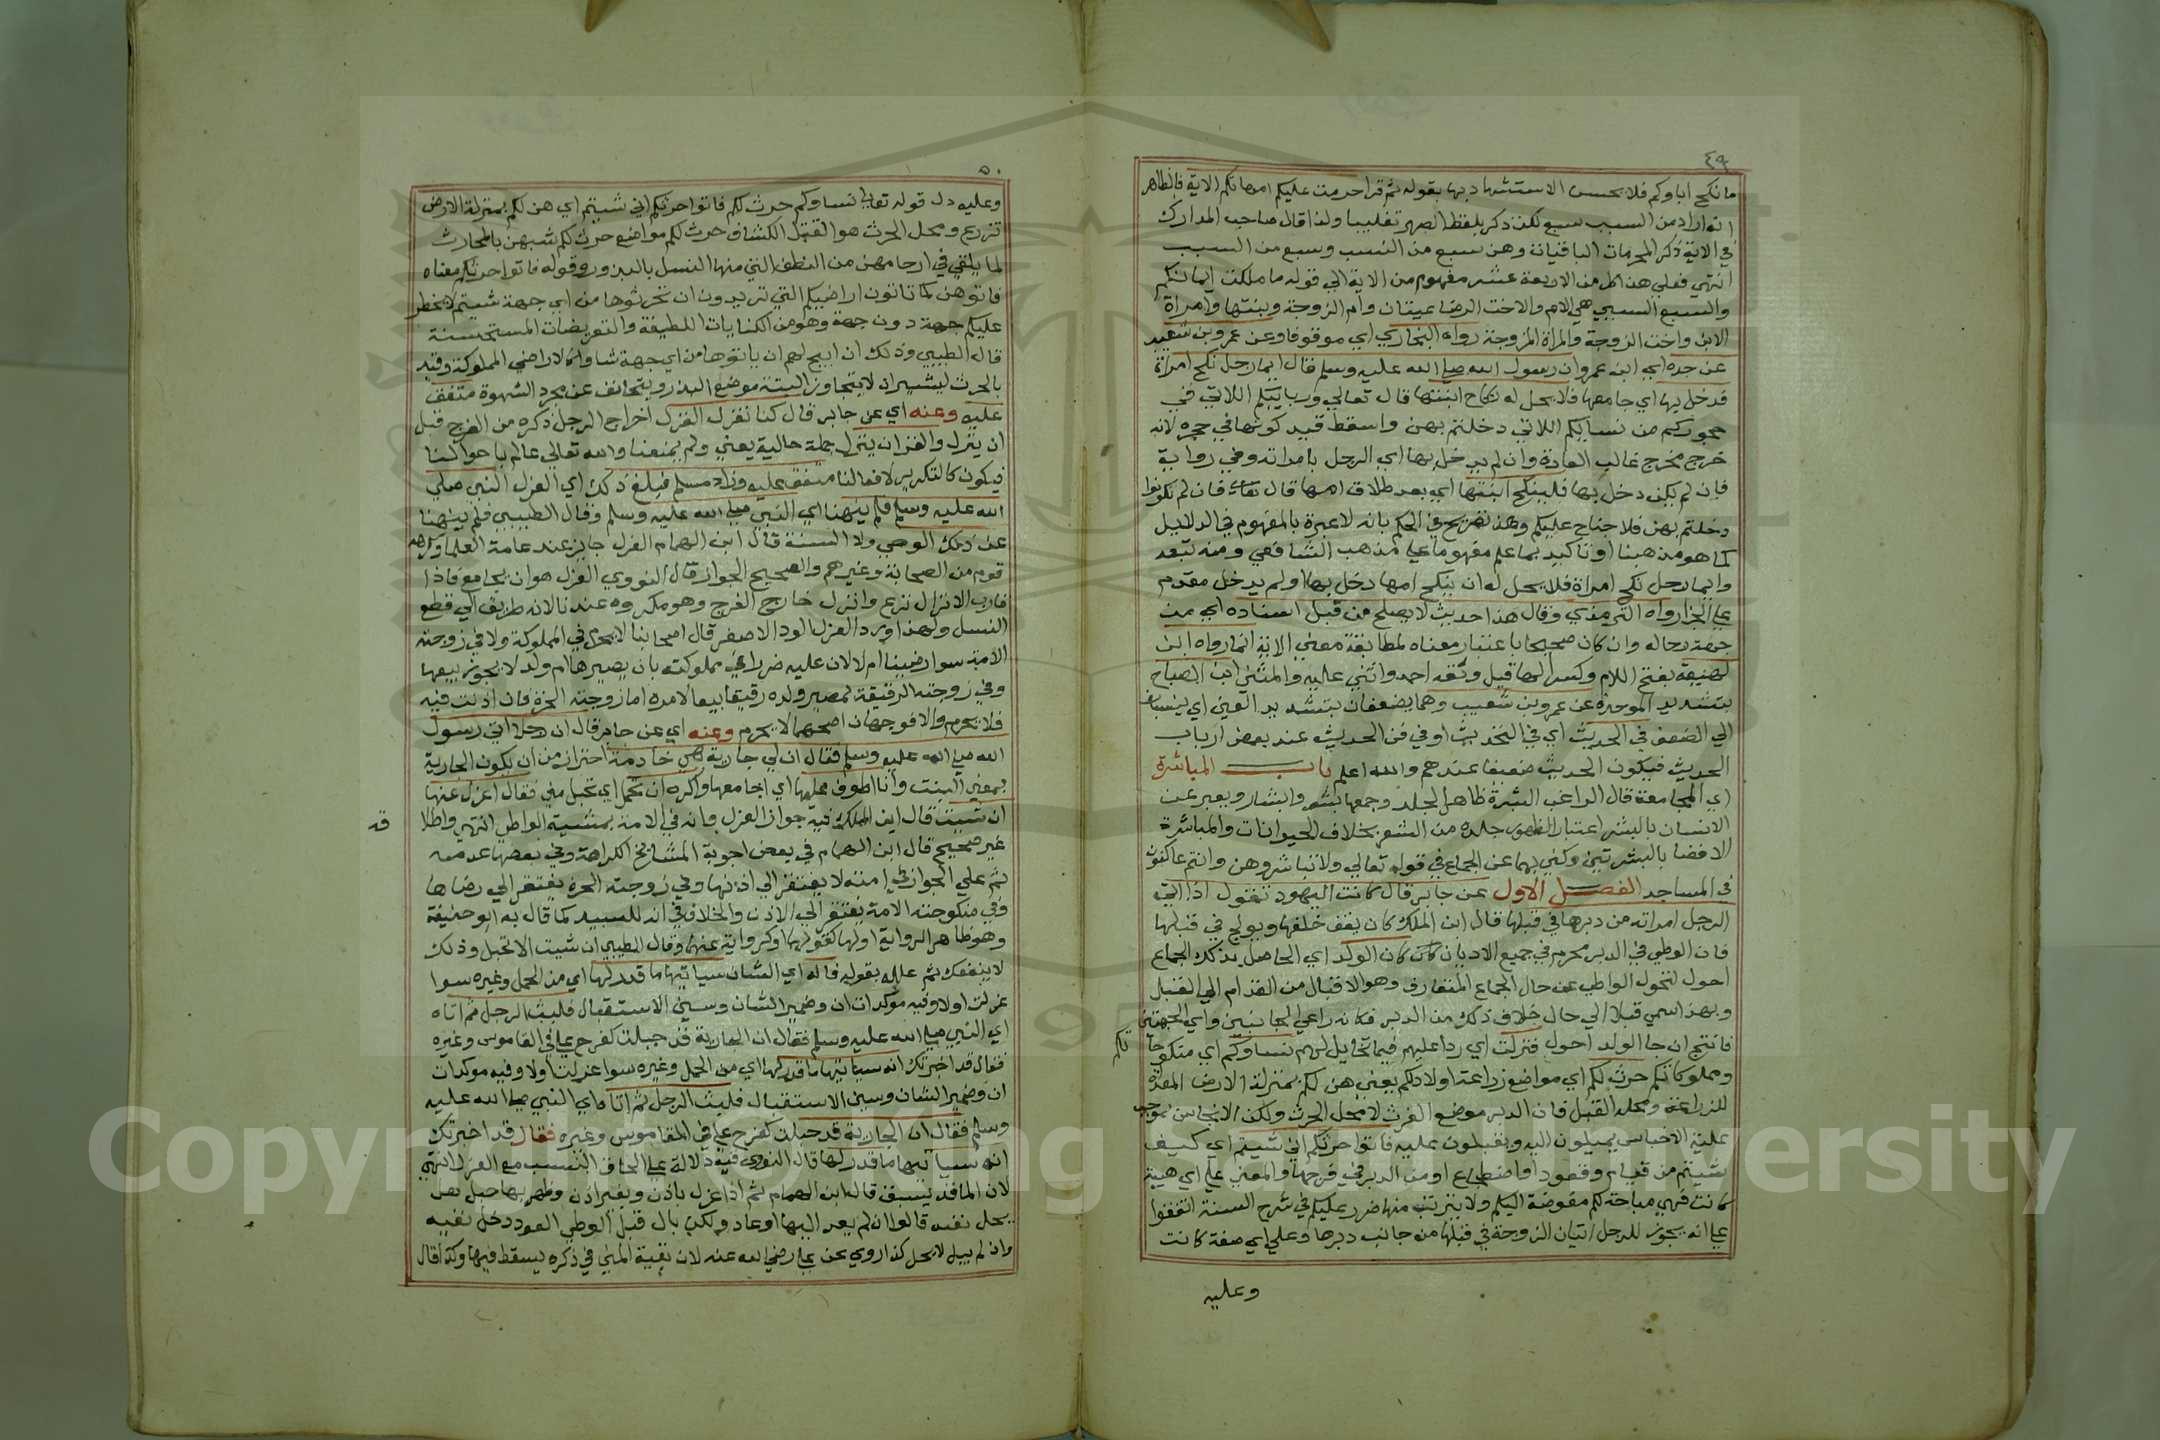 ٤٩
ما نكح اباوكم فلا يحسن الاستشهاد بها بقوله ثم قرا حرمت عليكم امهاتكم الاية فالظاهر
انه اراد من السبب سبع لكن ذكر بلفظ الصهر تغليبا ولذا قال صاحب المدارك
في الاية ذكر المحرمات الباقيانة وهن سبع من النسب وسبع من السبب
انتهي فعلي هذا كل من الاربعة عشر مفهوم من الاية الي قوله ما ملكت ايمانكم
والسبع السببي هي الام والاخت الرضاعيتان وام الزوجة وبنتها وامراة
الابن واخت الزوجة والمراة المزوجة رواه البخاري اي موقوفا وعن عمرو بن شعيب
عن جده اي ابن عمرو ان رسول الله صلي الله عليه وسلم قال ايما رجل نكح امراة
فدخل بها اي جامعها فلا يحل له نكاح ابنتها قال تعالي وربايبكم اللاتي في
حجوركم من نسايكم اللاتي دخلتم بهن واسقط قيد كونها في حجره لانه
خرج مخرج غالب العادة وان لم يدخل بها اي الرجل بامراته وفي رواية
فان لم يكن دخل بها فلينكح ابنتها اي بعد طلاق امها قال تعالي فان لم تكونوا
دخلتم بهن فلا جناح عليكم وهذا تصريح في الحكم بانه لا عبرة بالمفهوم في الدلايل
كما هو مذهبنا او تاكيد بما علم مفهوما علي مذهب الشافعي ومنه تبعه
وايما رجل نكح امراة فلا يحل له ان ينكح امها دخل بها او لم يدخل مقدم
علي الجزا رواه الترمذي وقال هذا حديث لا يصلح من قبل اسناده اي من
جهة رجاله وان كان صحيحا باعتبار معناه لمطابقة معني الاية انما رواه ابن
لهيعة بفتح اللام وكسر الها قيل وثقه احمد واثني عليه والمثني ابن الصباح
بتشديد الموحدة عن عمرو بن شعيب وهما يضعفان بتشديد العين اي ينسبان
الي الضعف في الحديث اي في التحديث او في فن الحديث عند بعض ارباب
الحديث فيكون الحديث ضعيفا عندهم والله اعلم باب المباشرة
اي المجامعة قال الراغب البشرة ظاهر الجلد وجمعها بشر وابشار ويعبر عن
الانسان بالبشر اعتبارا بظهور جلده من الشعر بخلاف الحيوانات والمباشرة
الافضا بالبشرتين وكني بها عن الجماع في قوله تعالي ولا تباشروهن وانتم عاكفون
في المساجد الفصل الاول عن جابر قال كانت اليهود تقول اذا اتي
الرجل امراته من دبرها في قبلها قال ابن الملك كان يقف خلفها ويولج في قبلها
فان الوطي في الدبر محرم في جميع الاديان كان الولد اي الحاصل بذلك الجماع
احول لتحول الواطي عن حال الجماع المتعارف وهو الاقبال من القدام الي القبل
وبهذا سمي قبلا الي حال خلاف ذلك من الدبر فكانه راعي الجانبين وراي الجهتين
فانتج ان جا الولد احول فنزلت اي ردا عليهم فيما تخايل لهم نساوكم اي منكوحاتكم
ومملوكاتكم حرث لكم اي مواضع زراعة اولادكم يعني هن لكم بمنزلة الارض المعدة
للزراعة ومحله القبل فان الدبر موضع الفرث لا محل الحرث ولكن الانجاس بموجب
علية الاخباس يميلون اليه ويقبلون عليه فاتوا حرثكم اني شيتم اي كيف
شيتم من قيام وقعود او اضطجاع او من الدبر في فرجها والمعني علي اي هيية
كانت فهي مباحة لكم مفوضة اليكم ولا يترتب منها ضرر عليكم في شرح السنة اتفقوا
علي انه يجوز للرجل اتيان الزوجة في قبلها من جانب دبرها وعلي اي صفة كانت
وعليه
٥٠
وعليه دل قوله تعالي نساوكم حرث لكم فاتوا حرثكم اني شيتم اي هن لكم بمنزلة الارض
تزرع ومحل الحرث هو القبل الكشاف حرث لكم مواضع حرث لكم شبهن بالمحارث
لما يلقي في ارحامهن من النطف التي منها النسل بالبذور وقوله فاتوا حرثكم معناه
فاتوهن كما تاتون اراضيكم التي تريدون ان تحرثوها من اي جهة شيتم لا يحظر
عليكم جهة دون جهة وهو من الكنايات اللطيفة والتعريضات المستحسنة
قال الطيبي وذلك ان ابيح لهم ان ياتوها من اي جهة شاوا كالاراضي المملوكة وقيد
بالحرث ليشير ان لا يتجاوز البتة موضع البذر ويتجانف عن مجرد الشهوة متفق
عليه وعنه اي عن جابر قال كنا نعزل العزل اخراج الرجل ذكره من الفرج قبل
ان ينزل والقران ينزل جملة حالية يعني ولم يمنعنا والله تعالي عالم باحوالنا
فيكون كالتقرير لافعالنا متفق عليه وزاد مسلم فبلغ ذلك اي العزل النبي صلي
الله عليه وسلم فلم ينهنا اي النبي صلي الله عليه وسلم وقال الطيبي فلم ينهنا
عن ذلك الوحي ولا السنة قال ابن الهمام العزل جايز عند عامة العلما وكرهه
قوم من الصحابة وغيرهم والصحيح الجواز قال النووي العزل هو ان يجامع فاذا
قارب الانزال نزع وانزل خارج الفرج وهو مكروه عندنا لانه طريق الي قطع
النسل ولهذا ورد العزل الواد الاصغر قال اصحابنا لا يحرم في المملوكة ولا في زوجته
الامة سوا رضيتا ام لا لان عليه ضررا في مملوكته بان يصيرها ام ولد لا يجوز بيعها
وفي زوجته الرقيقة لمصير ولده رقيقا تبعا لامه اما زوجته الحرة فان اذنت فيه
فلا يحرم والا فوجهان اصحهما لا يحرم وعنه اي عن جابر قال ان رجلا اتي رسول
الله صلي الله عليه وسلم فقال ان لي جارية هي خادمة احترازا من ان يكون الجارية
بمعني البنت وانا اطوف عليها اي اجامعها واكره ان تحمل اي تحبل مني فقال اعزل عنها
ان شيت قال ابن الملك فيه جواز العزل وانه في الامة بمشيية الواطي انتهي واطلاقه
غير صحيح قال ابن الهمام في بعض اجوبة المشايخ الكراهة وفي بعضها عدمه
ثم علي الجواز في امته لا يفتقر الي اذنها وفي زوجته الحرة يفتقر الي رضاها
وفي منكوحته الامة يفتقر الي الاذن والخلاف في انه للسيد كما قال به ابو حنيفة
وهو ظاهر الرواية او لها كقولهما وكرواية عنهما وقال الطيبي ان شيت الا تحبل وذلك
لا ينفعك ثم علله بقوله فانه اي الشان سياتيها ما قدر لها اي من الحمل وغيره سوا
عزلت اولا وفيه موكدات ان وضمير الشان وسين الاستقبال فلبث الرجل ثم اتاه
اي النبي صلي الله عليه وسلم فقال ان الجارية قد حبلت كفرح علي في القاموس وغيره
فقال قد اخبرتك انه سياتيها ما قدر لها اي من الحمل وغيره سوا عزلت اولا وفيه موكدات
ان وضمير الشان وسين الاستقبال فلبث الرجل ثم اتاه اي النبي صلي الله عليه
وسلم فقال ان الجارية قد حبلت كفرح علي في القاموس وغيره فقال قد اخبرتك
انه سياتيها ما قدر لها قال النووي فيه دلالة علي الحاق النسب مع العزل انتهي
لان الما قد يسبق قال ابن الهمام ثم اذا عزل باذن وبغير اذن وظهر بها حبل هل
يحل نفيه قالوا ان لم يعد اليها او عاد ولكن بال قبل الوطي العود دخل نفيه
وان لم يبل لا يحل كذا روي عن علي رضي الله عنه لان بقية المني في ذكره يسقط فيها وكذا قال
Copyright © King Saud University